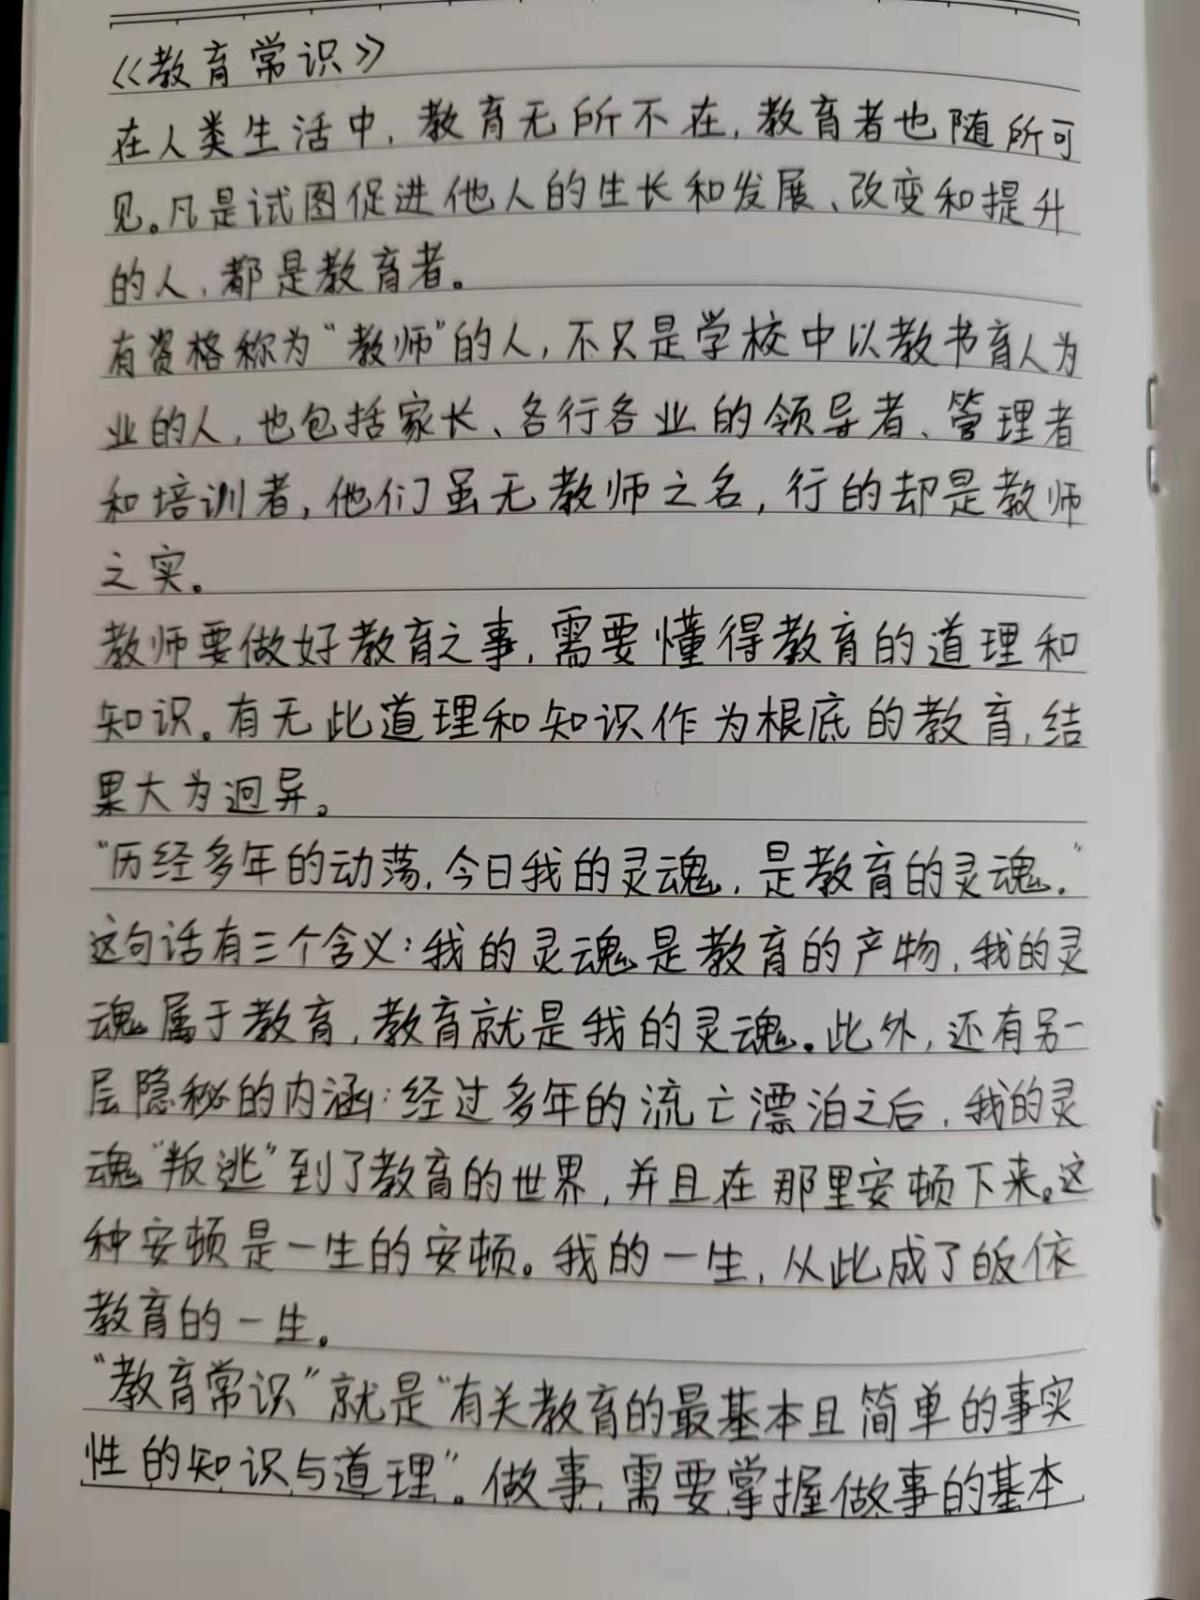 《教育常识》
在人类生活中，教育无所不在，教育者也随所可
见。凡是试图促进他人的生长和发展、改变和提升
的人，都是教育者。
有资格称为“教师”的人，不只是学校中以教书育人为
业的人，也包括家长、各行各业的领导者、管理者
和培训者，他们虽无教师之名，行的却是教师
之实。
教师要做好教育之事，需要懂得教育的道理和
知识。有无此道理和知识作为根底的教育，结
果大为迥异。
“历经多年的动荡，今日我的灵魂，是教育的灵魂。”
这句话有三个含义：我的灵魂是教育的产物，我的灵
魂属于教育，教育就是我的灵魂。此外，还有另一
层隐秘的内涵：经过多年的流亡漂泊之后，我的灵
魂“叛逃”到了教育的世界，并且在那里安顿下来。这
种安顿是一生的安顿。我的一生，从此成了皈依
教育的一生。
“教育常识”就是“有关教育的最基本且简单的事实
性的知识与道理”。做事，需要掌握做事的基本